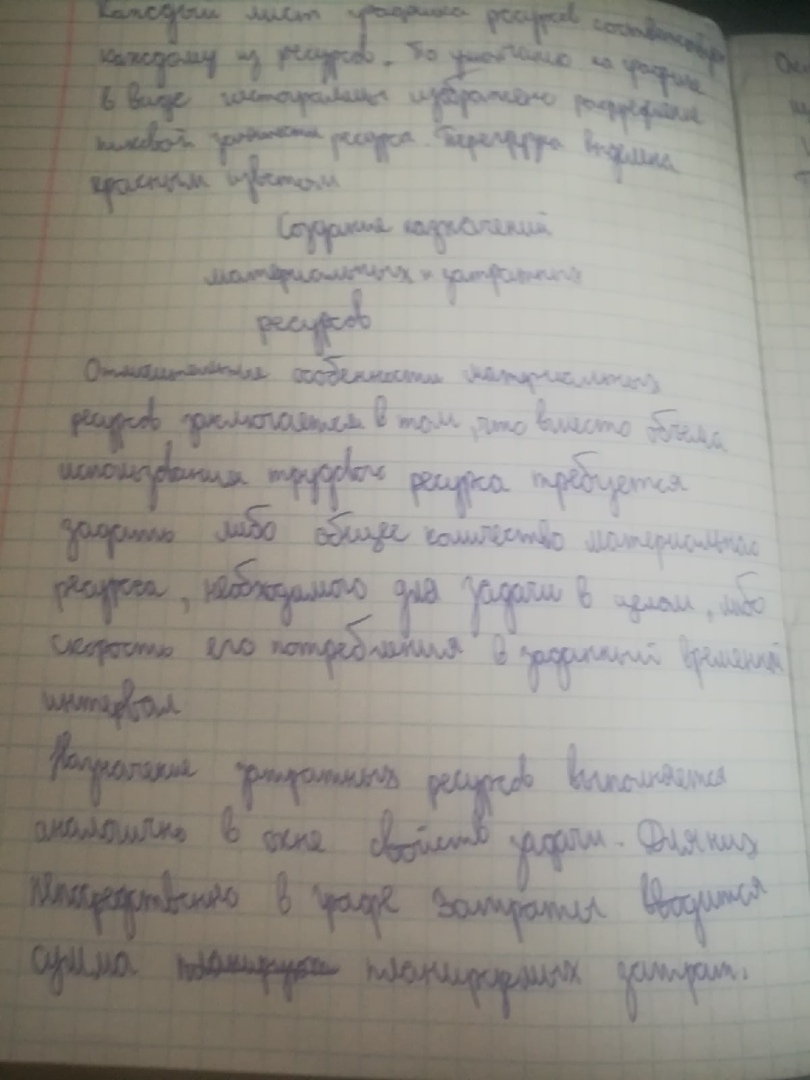 Каждый лист графика ресурсов соответствует
каждому из ресурсов. По умолчанию на графике
в виде гистограммы изображено распределение
пиковой занятости ресурса. Перегрузка выделена
красным цветом
Создание назначений
материальных и затратных
ресурсов
Отличительная особенности материальных
ресурсов заключается в том, что вместо объема
использования трудового ресурса требуется
задать либо общее количество материального
ресурса, необходимого для задачи в целом, либо
скорость его потребления в заданный временной
интервал
Назначение затратных ресурсов выполняется
аналогично в окне свойств задачи. Для них
непосредственно в графе Затраты вводится
сумма планируемых затрат.